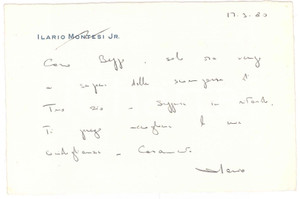 17.3.80
ILARIO MONTESI JR.
Caro Beppe, solo ora vengo
a sapere della scomparsa di
Tuo zio -
Ti prego accogliere le mie
condoglianze -
Ilario